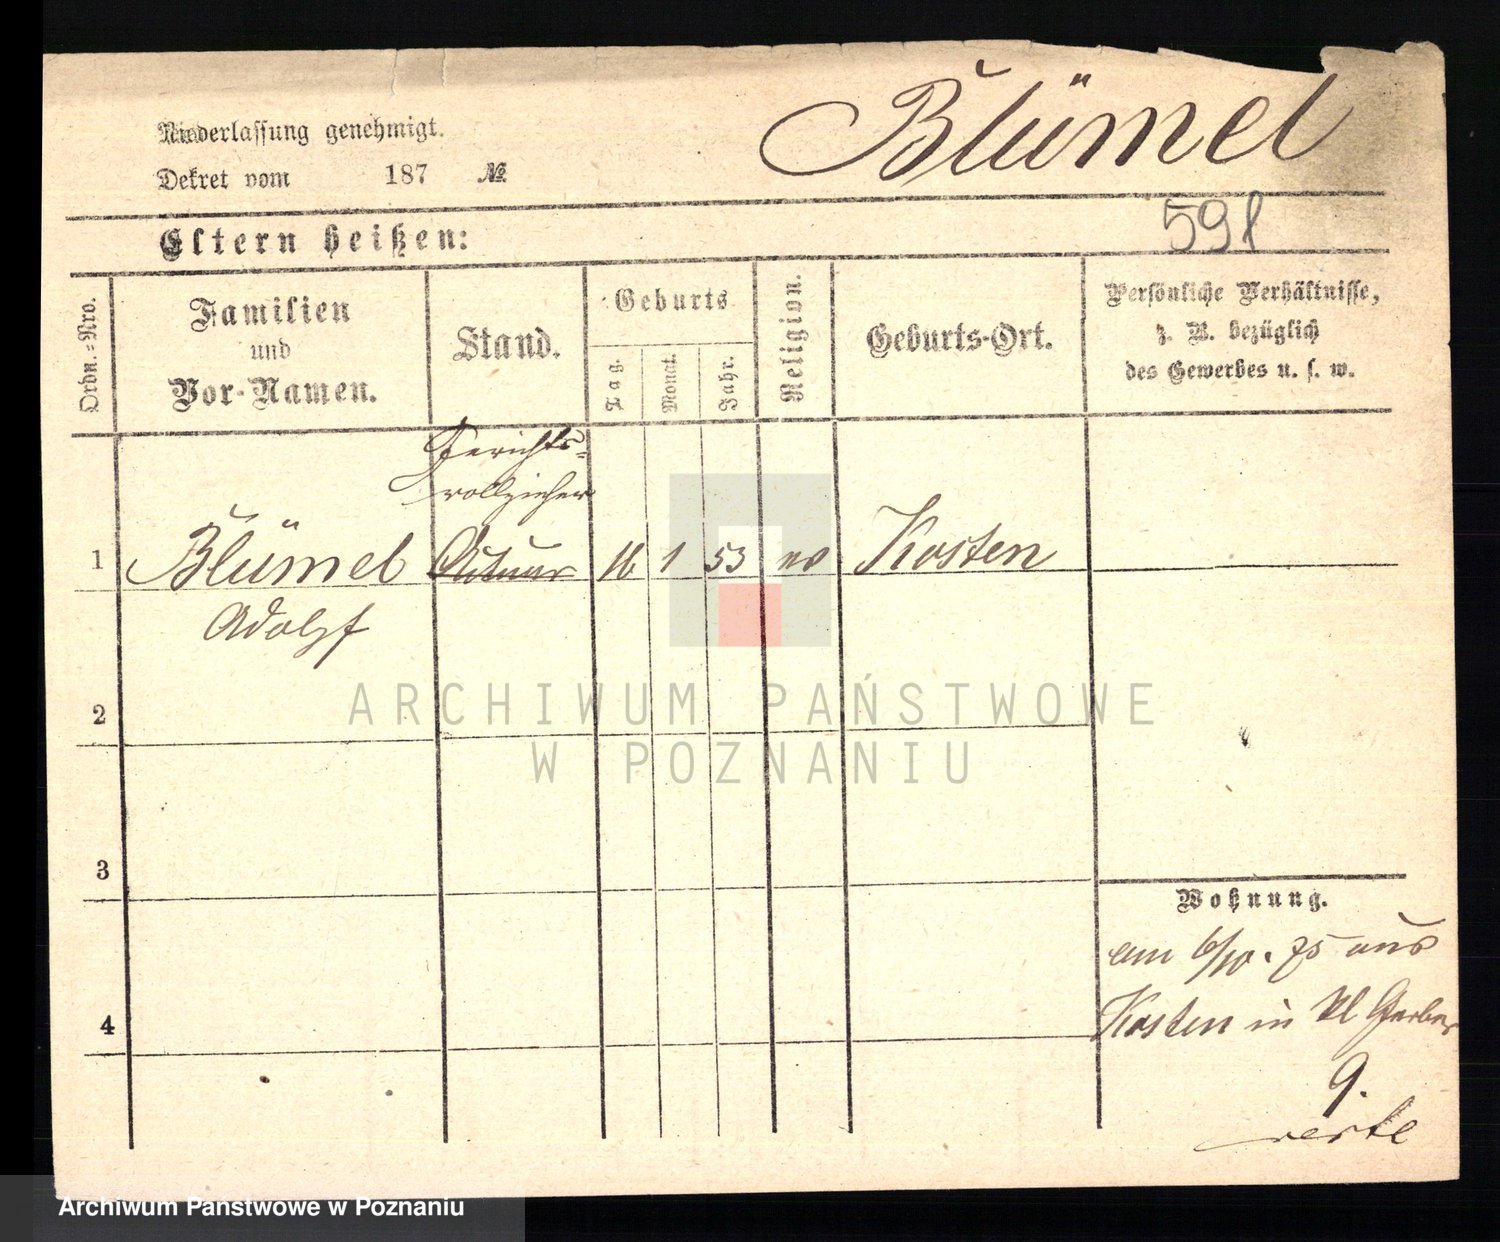 Blümel
Niederlassung genehmigt.
Dekret vom 187 №
591
Eltern heißen:
Ordn.-Nro.
Familien
und
Vor-Namen.
Stand.
Geburts
Tag.
Monat.
Jahr.
Religion.
Geburts-Ort.
Persönliche Verhältnisse,
z. B. bezüglich
des Gewerbes u. s. w.
Gerichts-
vollzieher
1 Blümel Actuar 16 1 53 ev Kosten
Adolf
2
3
4
Wohnung.
am 6/10. 75 aus
Kosten in kl Gerber
9.
verte
ARCHIWUM PAŃSTWOWE
W POZNANIU
Archiwum Państwowe w Poznaniu